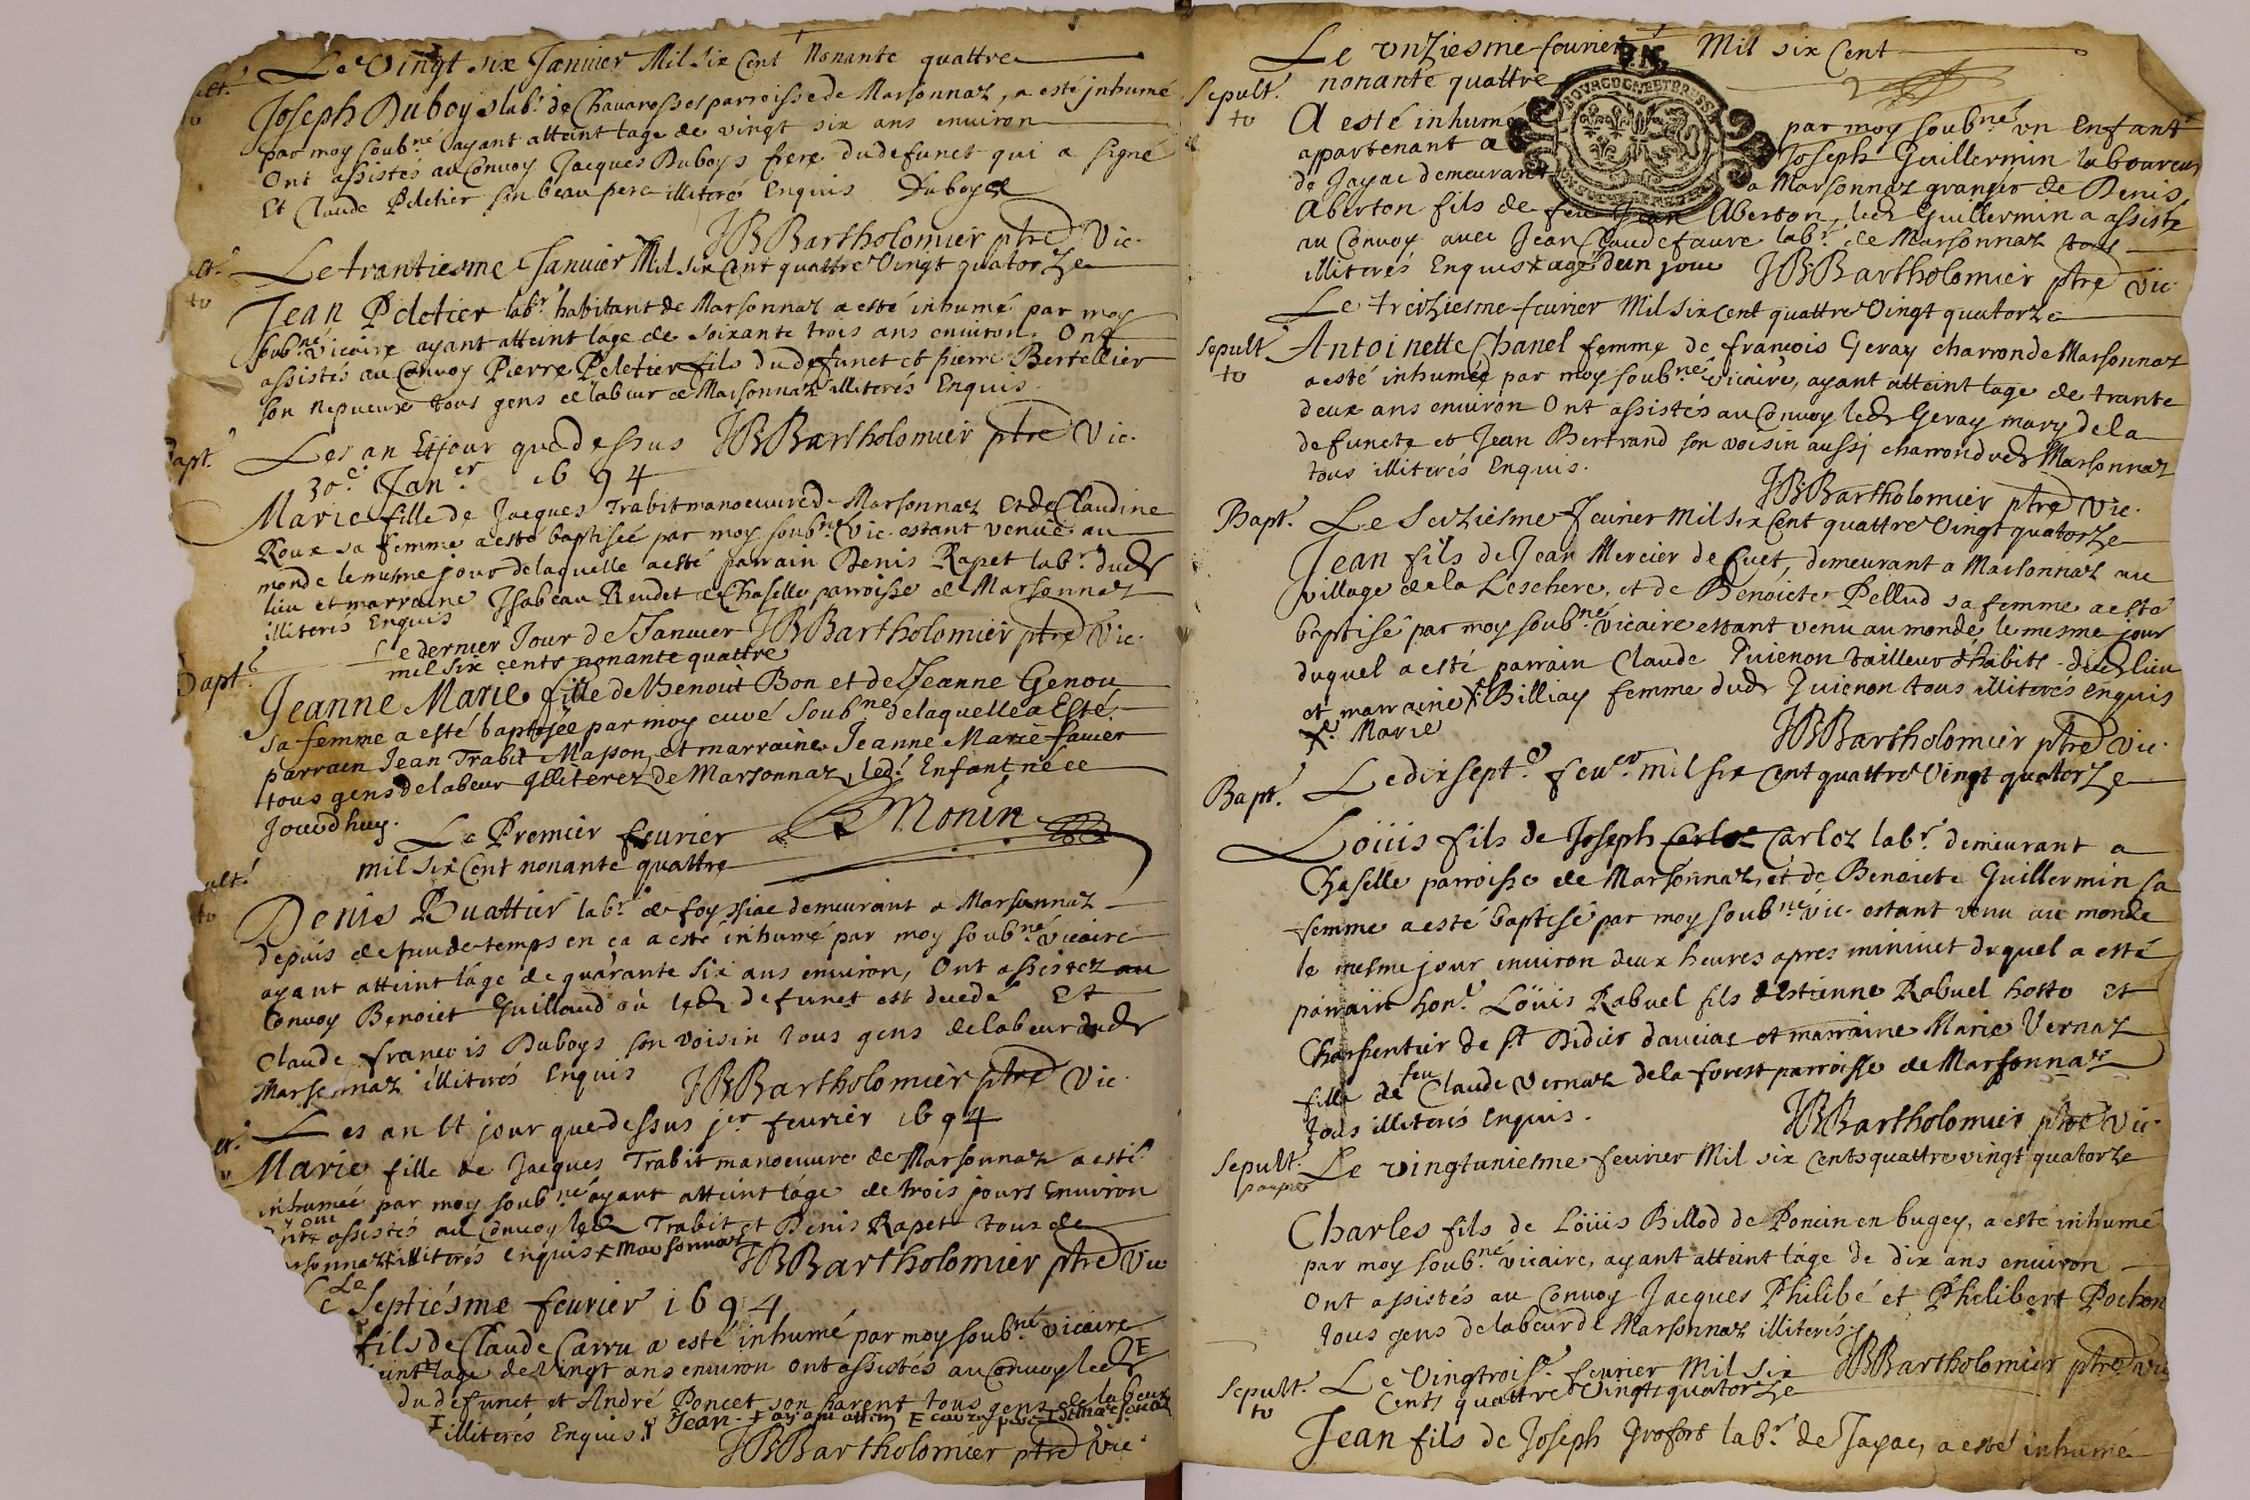 Le Vingt six Januier Mil six Cent Nonante quattre
Joseph Duboys labr. de Chauarosses parroisse de Marsonnaz, a esté jnhumé
par moy soubné ayant atteint lage de vingt six ans environ
Ont assistés au Convoy Jacques Duboys frere du defunct qui a signé
Et Claude Peletier son beau pere illiteré Enquis Duboys
JBBartholomier ptre Vic.
to
Le trantiesme Januier Mil six Cent quattre Vingt quatorze
Jean Peletier labr. habitant de Marsonnaz a esté inhumé par moy
soubné Vicaire ayant atteint láge de soixante trois ans enuiron. Ont
assistés au Convoy Pierre Peletier fils du defunct et pierre Bertellier
son nepueux tous gens de labeur de Marsonnaz illiterés Enquis.
Les an Et jour que dessus JBBartholomier ptre Vic.
Bapt.
30e. Janer 1694
Marie fille de Jacques Trabit manoeuure de Marsonnaz Et de Claudine
Roux sa femme a esté baptisée par moy soubné Vic. estant venuë au
monde le mesme jour de laquelle a esté parrain Denis Rapet labr. dud
lieu et marraine Jsabeau Reudet de Chaselle parroisse de Marsonnaz
illiterés Enquis JBBartholomier ptre Vic.
Le dernier Jour de Januier
mil six cents nonante quattre
Bapt.
Jeanne Marie fille de Benoit Bon et de Jeanne Genou
sa femme a esté baptisée par moy curé soubné de laquelle a Esté
parrain Jean Trabit Masson, et marraine Jeanne Marie fauier
tous gens de labeur Jlliterez de Marsonnaz, led. Enfant née ce
Jourdhuy. Monin
Le Premier feurier
mil six Cent nonante quattre
to
Denis Buattier labr. de foyssiac demeurant a Marsonnaz
depuis de peu de temps en ca a esté inhumé par moy soubné Vicaire
ayant atteint láge de quarante six ans enuiron, Ont assistez au
Convoy Benoict Guillaud où led defunct est decedé Et
Claude francois Duboys son voisin tous gens de labeur dud
Marsonnaz illiterés Enquis JBBartholomier ptre Vic.
Les an Et jour que dessus jer feurier 1694
Marie fille de Jacques Trabit manoeuure de Marsonnaz a esté
inhumée par moy soubné ayant atteint láge de trois jours Enuiron
assistés au Convoy led Trabit et Denis Rapet tous de
illiterés Enquis Marsonnaz
JBBartholomier ptre Vic
Le Septiésme feurier 1694
fils de Claude Carru a esté inhumé par moy soubné vicaire
lage de Vingt ans enuiron ont assistés au Convoy led
du defunct et André Poncet son parent tous gens de labeur
illiterés Enquis Jean
JBBartholomier ptre Vic.
Le Vnziesme feurier Mil six Cent
nonante quattre
Sepult.
to
A esté inhumé par moy soubné vn Enfant
appartenant a Joseph Guillermin laboureur
de Jayac demeurant a Marsonnaz granger de Denis
Aberton fils de feu Jean Aberton, led Guillermin a assisté
au Convoy auec Jean Claude faure labr. de Marsonnaz tous
illiterés Enquis agé d'un jour JBBartholomier ptre Vic
Le treiziesme feurier Mil six Cent quattre Vingt quatorze
Sepult.
to
Antoinette Chanel femme de francois Geray charron de Marsonnaz
a esté inhumée par moy soubné vicaire, ayant atteint lage de trante
deux ans enuiron Ont assistés au Convoy led Geray mary de la
defuncte et Jean Bertrand son voisin aussj charron dud Marsonnaz
tous illiterés Enquis.
JBBartholomier ptre Vic.
Bapt.
Le Seiziesme feurier Mil six Cent quattre Vingt quatorze
Jean fils de Jean Mercier de Cuet, demeurant a Marsonnaz au
village de la Leschere, et de Benoicte Pellud sa femme a esté
baptisé par moy soubné vicaire estant venu au monde le mesme jour
duquel a esté parrain Claude Puienon tailleur d'habits dud lieu
et marraine Billiay femme dud Puienon tous illiterés enquis
Marie
JBBartholomier ptre Vic.
Bapt.
Le dixsepte. feuer. mil six Cent quattre Vingt quatorze
Loüis fils de Joseph Carloz labr. demeurant a
Chaselle parroisse de Marsonnaz, et de Benoicte Guillermin sa
femme a esté baptisé par moy soubné vic. estant venu au monde
le mesme jour enuiron deux heures apres minuict duquel a esté
parrain hone. Loüis Rabuel fils d'Estienne Rabuel hoste et
Charpentier de St. Didier dauciac et marraine Marie Vernaz
fille de feu Claude Vernaz de la forest parroisse de Marsonnaz
tous illiterés Enquis.
JBBartholomier ptre Vic.
Sepult.
Le vingtuniesme feurier Mil six Cents quattre vingt quatorze
Charles fils de Loüis Billod de Poncin en bugey, a esté inhumé
par moy soubné vicaire, ayant atteint láge de dix ans enuiron
Ont assistés au Convoy Jacques Philibé et Philibert Pochon
tous gens de labeur de Marsonnaz illiterés.
JBBartholomier ptre vic
Sepult.
to
Le Vingtrois. feurier Mil six
Cents quattre Vingts quatorze
Jean fils de Joseph Grofort labr. de Jayac, a esté inhumé